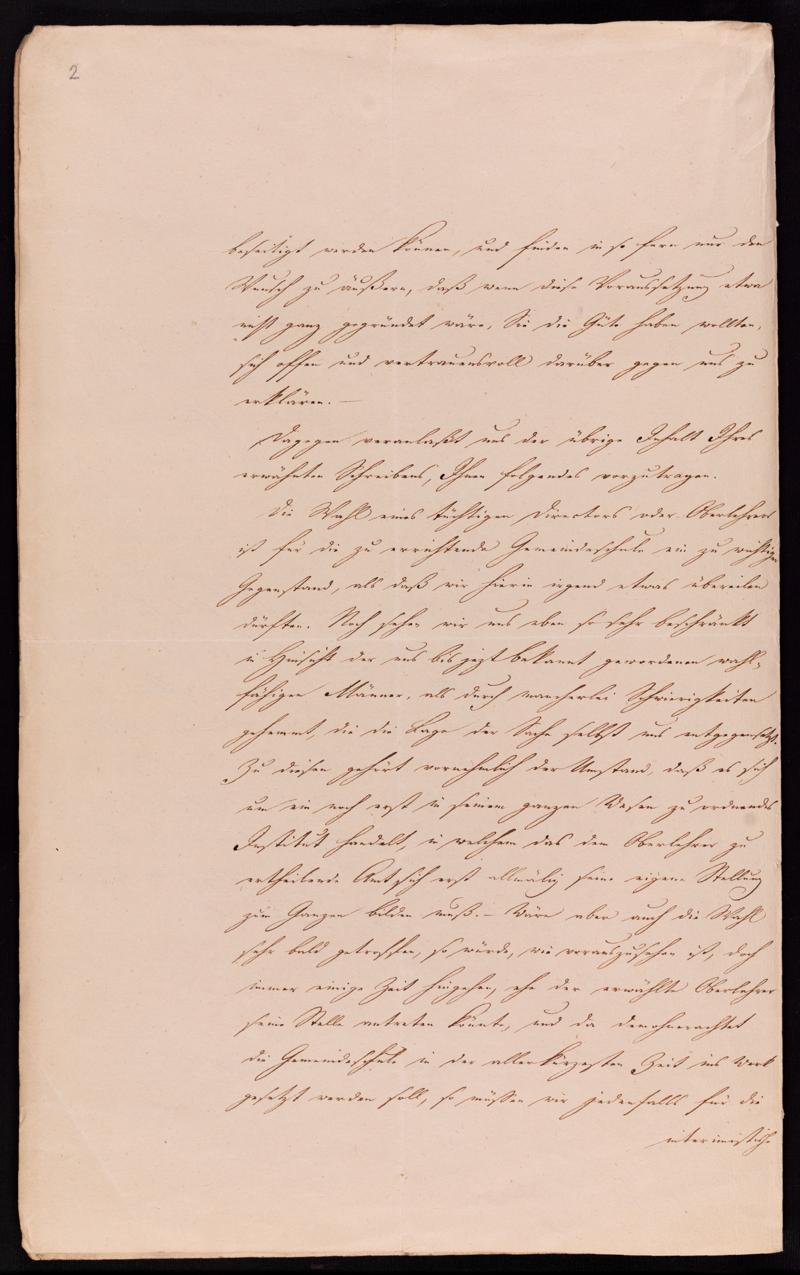 2
beseitigt werden können, und finden in so fern nur den
Wunsch zu äußern, daß wenn diese Voraussetzung etwa
nicht ganz gegründet wäre, Sie die Güte haben wollten,
sich offen und vertrauensvoll darüber gegen uns zu
erklären. —
Dagegen veranlaßt uns der übrige Inhalt Ihres
erwähnten Schreibens, Ihnen folgendes vorzutragen.
Die Wahl eines tüchtigen Directors oder Oberlehrers
ist für die zu errichtende Gemeindeschule ein zu wichtiger
Gegenstand, als daß wir hierin irgend etwas übereilen
dürften. Noch sehen wir uns eben so sehr beschränkt
in Hinsicht der uns bis jezt bekannt gewordenen wahl-
fähigen Männer, als durch mancherlei Schwierigkeiten
gehemmt, die die Lage der Sache selbst uns entgegensetzt.
Zu diesen gehört vornehmlich der Umstand, daß es sich
um ein noch erst in seinem ganzen Wesen zu ordnendes
Institut handelt, in welchem das dem Oberlehrer zu
ertheilende Amt sich erst allmälig seine eigene Stellung
zum Ganzen bilden muß. — Wäre aber auch die Wahl
sehr bald getroffen, so würde, wie vorauszusehen ist, doch
immer einige Zeit hingehen, ehe der erwählte Oberlehrer
seine Stelle antreten könnte, und da demohnerachtet
die Gemeindeschule in der allerkürzesten Zeit ins Werk
gesetzt werden soll, so müssen wir jedenfalls für die
interimistische